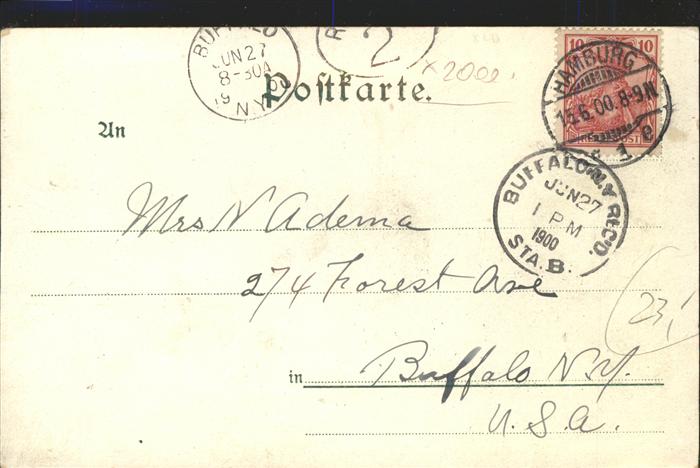 BUFFALO
JUN 27
8-30A
1900
N.Y.
R
2
x2000.
10 10
REICHSPOST
HAMBURG
15.6.00.8-9N
1 e
Postkarte.
An
BUFFALO, N.Y. REC'D.
JUN 27
1 PM
1900
STA. B.
Mrs N Adema
274 Forest Ave
23,
in Buffalo N.Y.
U.S.A.